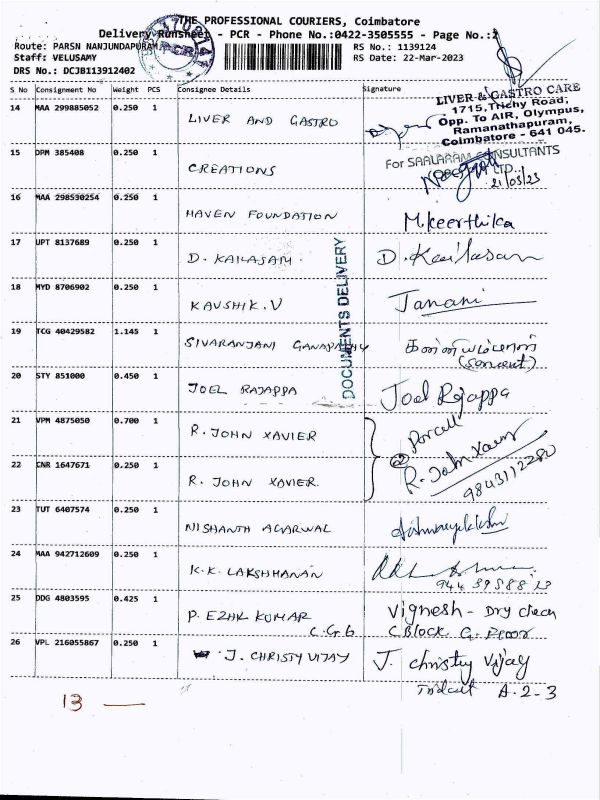 THE PROFESSIONAL COURIERS, Coimbatore
Delivery Runsheet - PCR - Phone No.:0422-3505555 - Page No.:2
Route: PARSN NANJUNDAPURAM
RS No.: 1139124
Staff: VELUSAMY
RS Date: 22-Mar-2023
DRS No.: DCJB113912402
PCR
S No Consignment No Weight PCS Consignee Details Signature
LIVER & GASTRO CARE
1715, Trichy Road,
Opp. To AIR, Olympus,
Ramanathapuram,
Coimbatore - 641 045.
14 MAA 299885052 0.250 1 LIVER AND GASTRO
For SAALARAM CONSULTANTS
LTD.
21/03/23
15 DPM 385408 0.250 1 CREATIONS
16 MAA 298530254 0.250 1 HAVEN FOUNDATION M.Keerthika
17 UPT 8137689 0.250 1 D. KAILASAM. D. Kailasam
DOCUMENTS DELIVERY
18 MYD 8706902 0.250 1 KAUSHIK.V Janani
19 TCG 40429582 1.145 1 SIVARANJANI GANAPATHY
(Servent)
20 STY 851000 0.450 1 JOEL REJAPPA Joel Rejappa
21 VPM 4875050 0.700 1 R. JOHN XAVIER
22 CNR 1647671 0.250 1 R. JOHN XAVIER. R. John Xavier
23 TUT 6407574 0.250 1 NISHANTH AGARWAL
24 MAA 942712609 0.250 1 K.K. LAKSHMANAN
25 DDG 4803595 0.425 1 P. EZHIL KUMAR Vignesh - Dry clean
C.G.6 C Block G. Floor
26 VPL 216055867 0.250 1 J. CHRISTY VIJAY J. christy Vijay
A-2-3
13 —